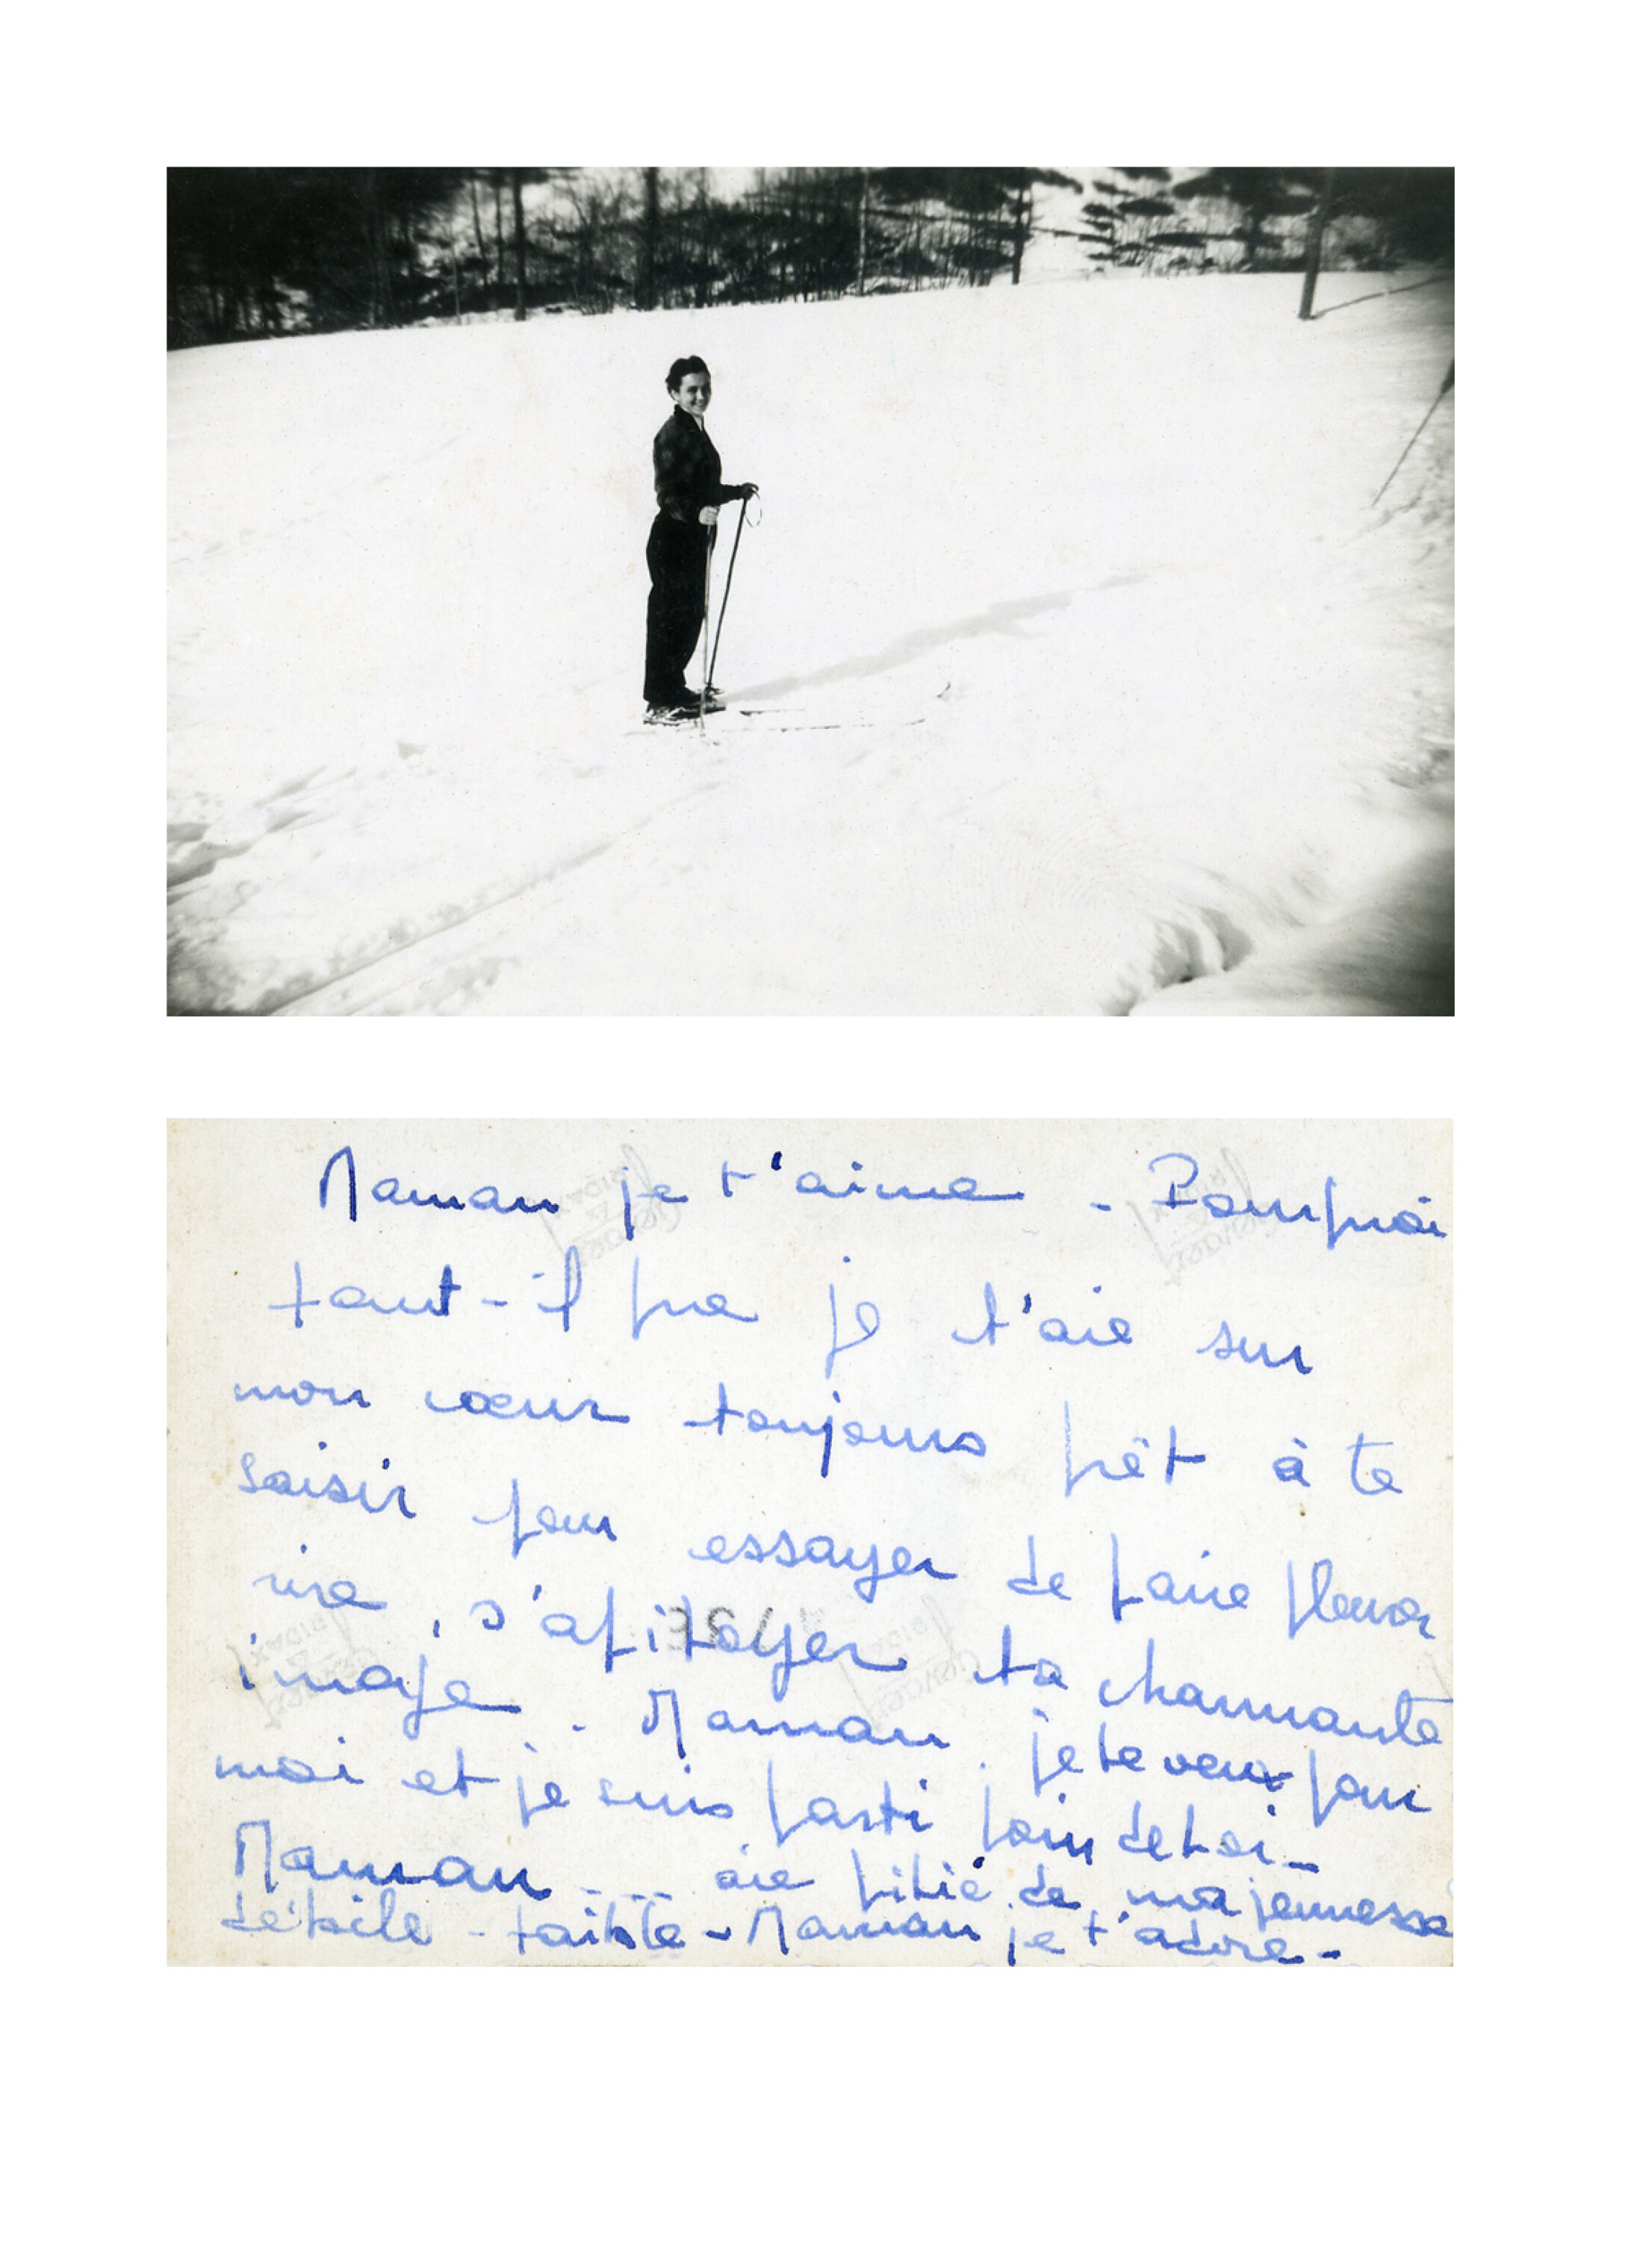 Maman je t'aime - Pourquoi
faut-il que je t'aie sur
mon cœur toujours prêt à te
saisir pour essayer de faire pleurer
rire, s'apitoyer ta charmante
image. Maman, je te veux pour
moi et je suis parti loin de toi -
Maman - - - - aie pitié de ma jeunesse
débile - faible - Maman je t'adore -